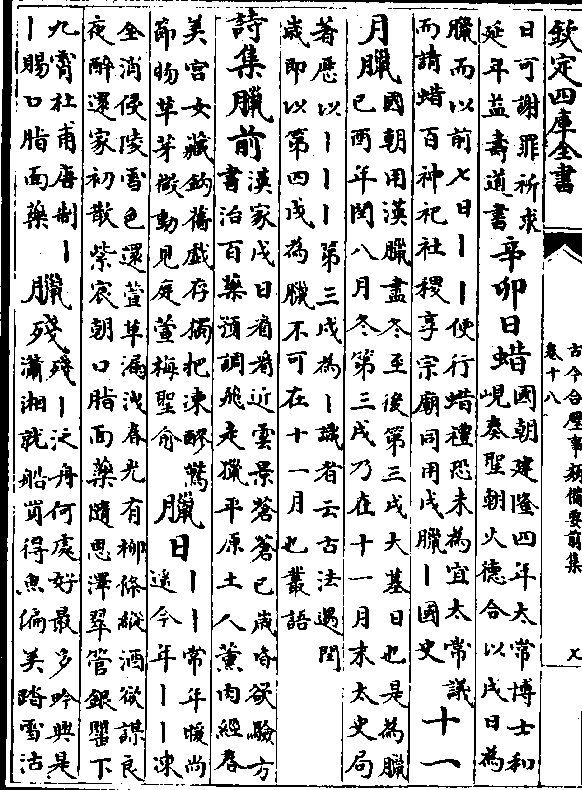 欽定四庫全書
古今合璧事類備要前集
卷十八
日可謝罪祈求
延年益壽道書
辛卯日蜡
國朝建隆四年太常博士和
峴奏聖朝火德合以戌日為
臘而以前七日丨丨便行蜡禮恐未為宜太常議
而請蜡百神祀社稷享宗廟同用戌臘丨國史
十一
月臘
國朝用漢臘盡冬至後第三戌大基日也是為臘
己酉年閏八月冬第三戌乃在十一月末太史局
著歴以丨丨丨第三戌為丨識者云古法遇閏
歳即以第四戌為臘不可在十一月也叢語
詩集臘前
漢家戌日看看近雲景蒼蒼已歳昏欲驗方
書治百藥預調飛走獵平原土人薰肉經春
美宫女藏鉤舊戲存摘把凍醪驚
節物草芽微動見庭萱梅聖俞
臘日
丨丨常年暖尚
遥今年丨丨凍
全消侵陵雪色還萱草漏洩春光有柳條縱酒欲謀良
夜醉還家初散紫宸朝口脂面藥隨恩澤翠管銀罌下
九霄杜甫唐制丨
丨賜口脂面藥
臘殘
殘丨泛舟何處好最多吟興是
瀟湘就船買得魚偏美踏雪沽